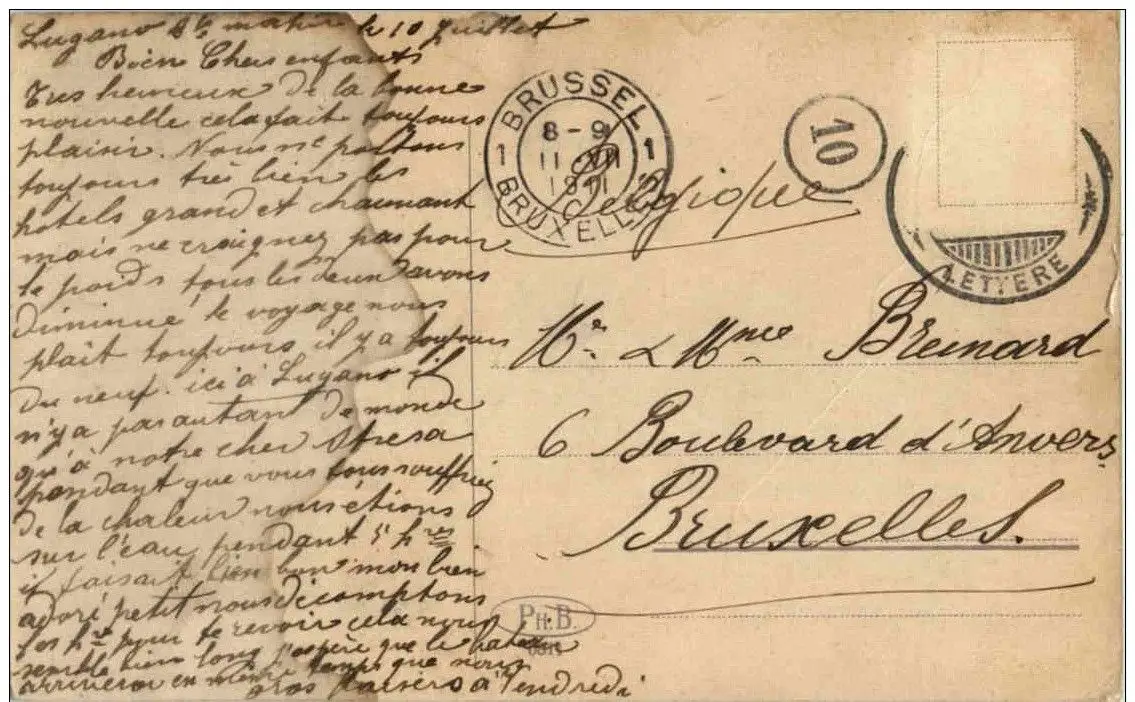 Lugano matin le 10 Juillet
Bien Chers enfants
Tres heureux de la bonne
nouvelle cela fait toujours
plaisir. Nous nt portons
toujours très bien les
hôtels grand et charmant
mais ne craignez pas pour
le poids tous les deux avons
diminué le voyage nous
plait toujours il y a toujours
du neuf. ici à Lugano il
n'y a pas autant de monde
qu'à notre cher Stresa
pendant que vous tous souffriez
de la chaleur nous étions
sur l'eau pendant 5 hres
il faisait bien bon mon bien
adoré petit nous décomptons
les hre pour te revoir cela nous
semble bien long j'espère que le bateau
arrivera en même temps que nous
gros baisers à Vendredi
1 BRUSSEL 1
8-9
11 VII
1911
BRUXELLES
10
LETTERE
Belgique
Mr. & Mme Bremard
6 Boulevard d'Anvers
Bruxelles.
PH. B.